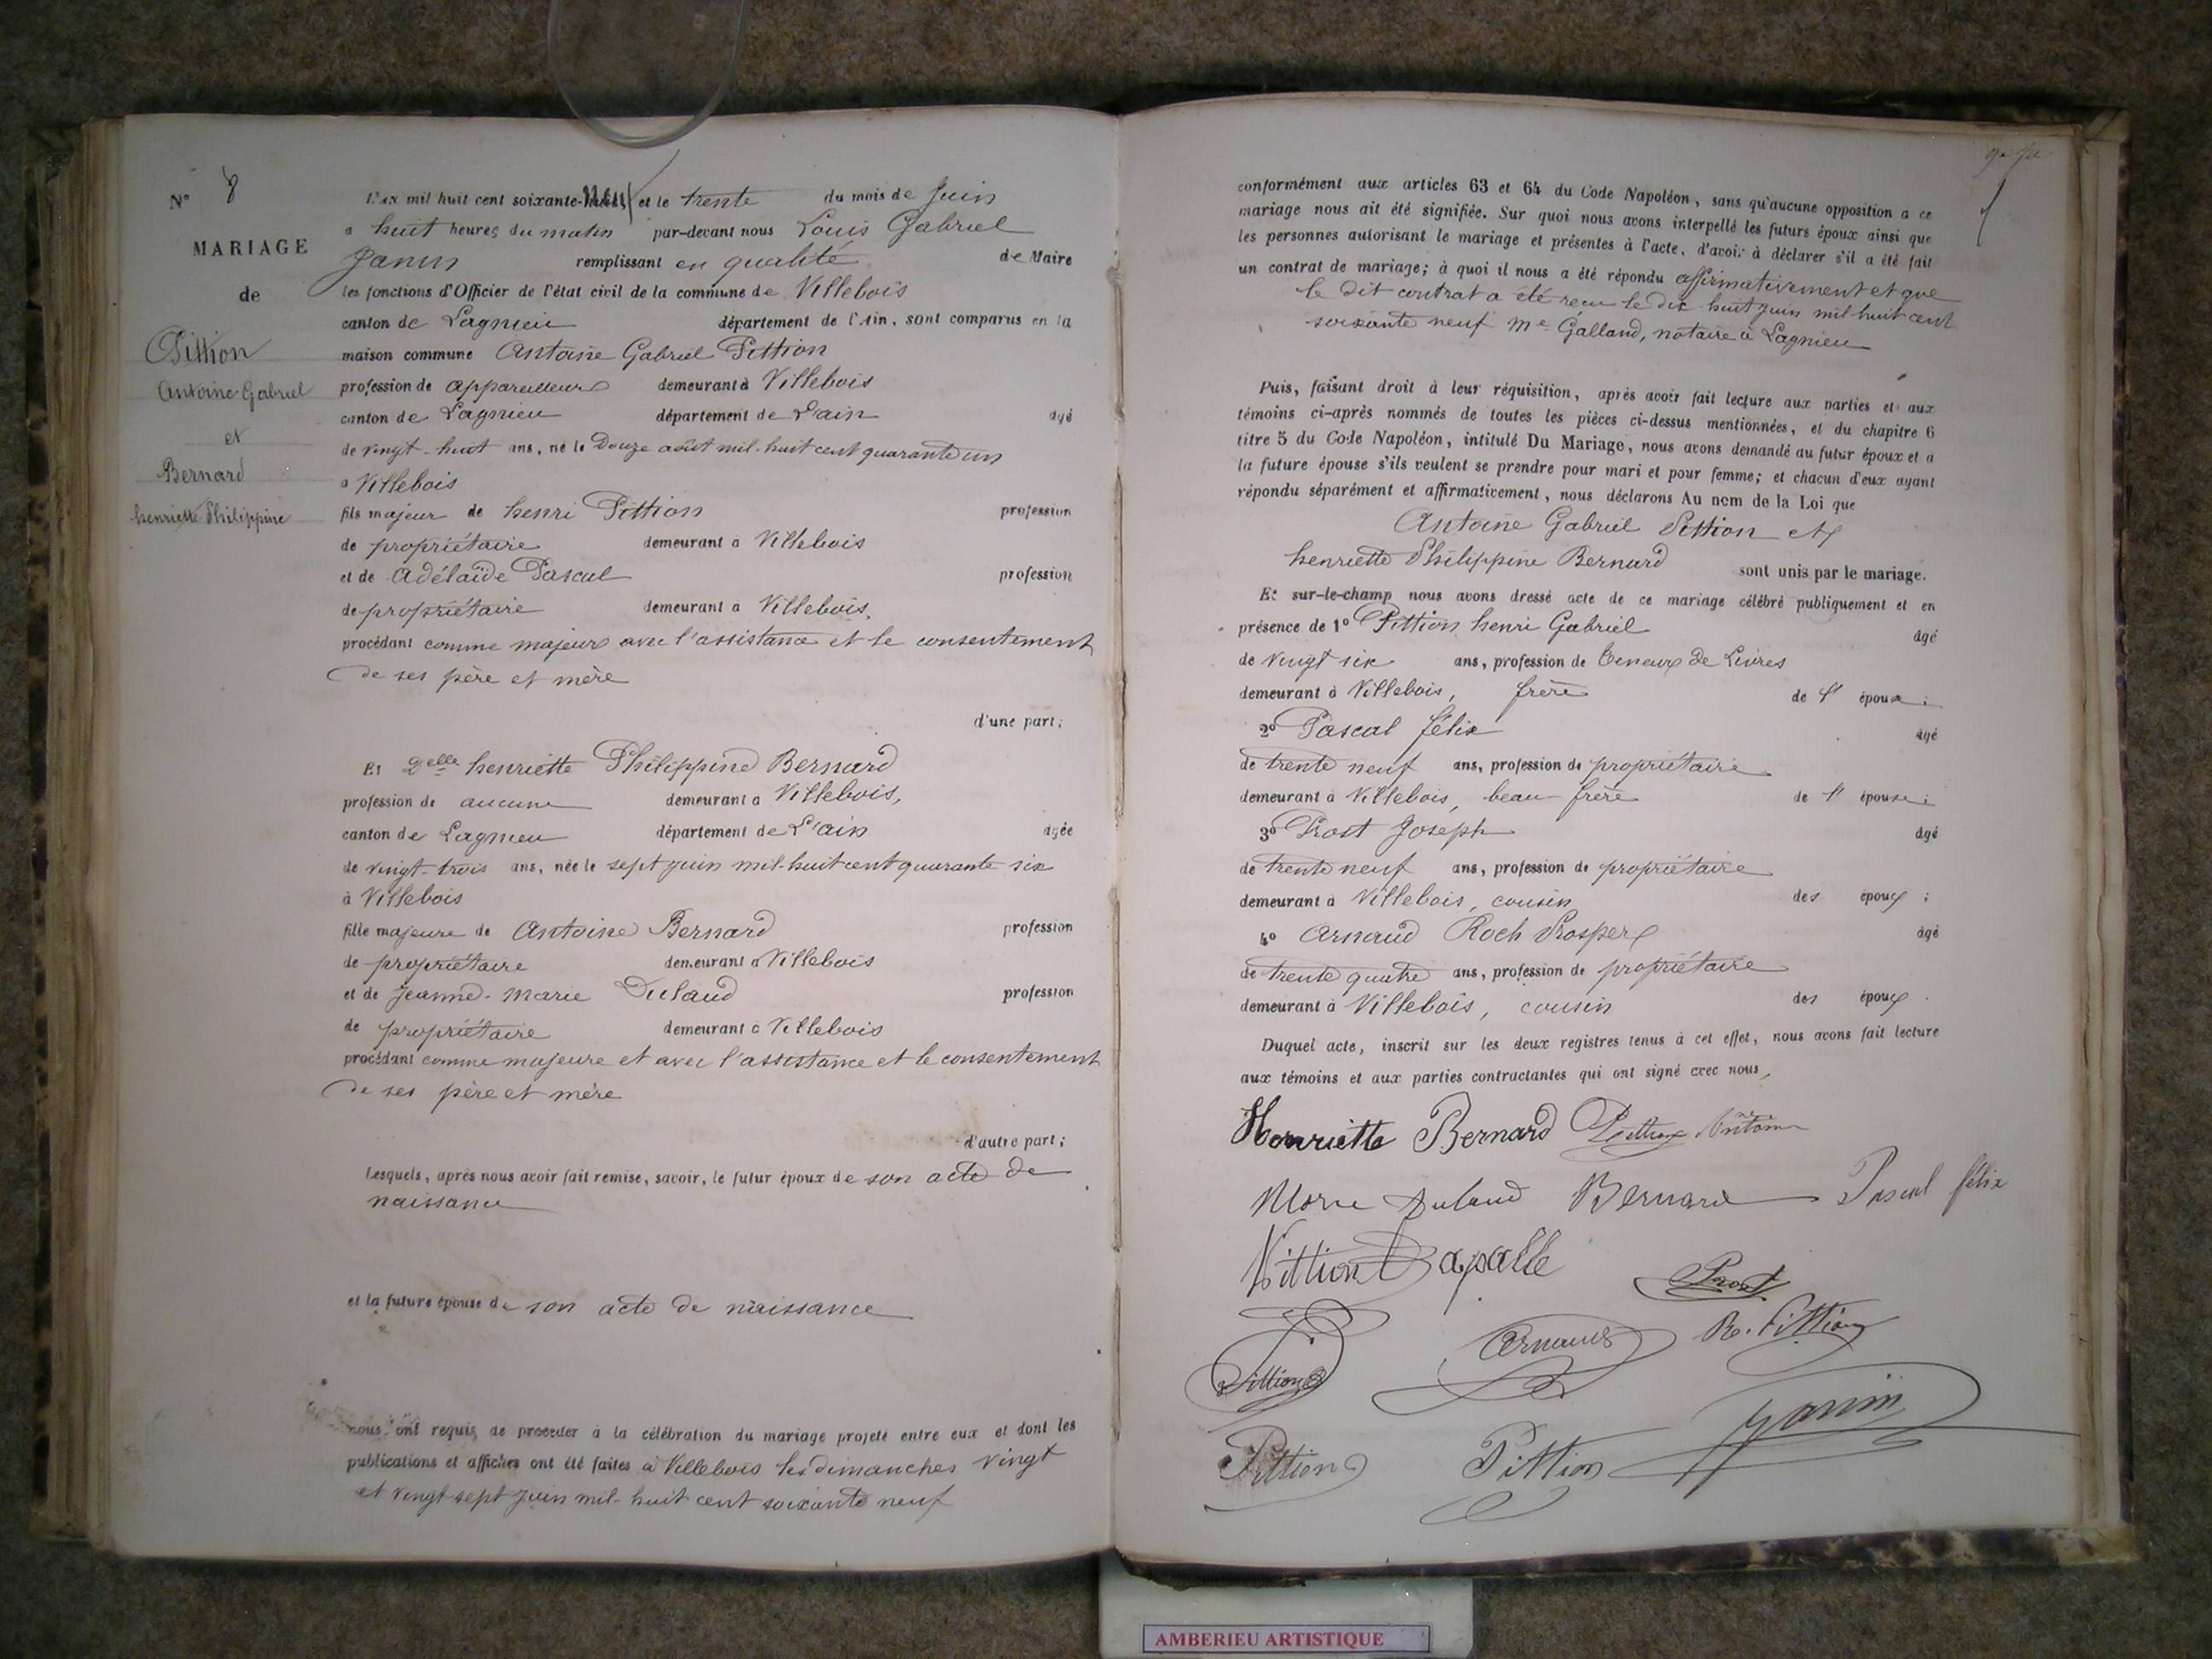 N° 8
MARIAGE
de
Pittion
Antoine Gabriel
et
Bernard
henriette Philippine
L'an mil huit cent soixante-neuf et le trente du mois de Juin
a huit heures du matin par-devant nous Louis Gabriel
Janin remplissant en qualité de Maire
les fonctions d'Officier de l'état civil de la commune de Villebois
canton de Lagnieu département de l'Ain, sont comparus en la
maison commune Antoine Gabriel Pittion
profession de appareilleur demeurant à Villebois
canton de Lagnieu département de L'ain âgé
de vingt-huit ans, né le Douze août mil-huit cent quarante un
a Villebois
fils majeur de henri Pittion profession
de propriétaire demeurant à Villebois
et de Adélaïde Pascal profession
de propriétaire demeurant a Villebois,
procédant comme majeur avec l'assistance et le consentement
de ses père et mère
d'une part;
Et Delle henriette Philippine Bernard
profession de aucune demeurant a Villebois,
canton de Lagnieu département de L'ain âgée
de vingt-trois ans, née le sept juin mil-huit cent quarante six
à Villebois
fille majeure de Antoine Bernard profession
de propriétaire demeurant a Villebois
et de Jeanne-Marie Dulaud profession
de propriétaire demeurant à Villebois
procédant comme majeure et avec l'assistance et le consentement
de ses père et mère
d'autre part;
Lesquels, après nous avoir fait remise, savoir, le futur époux de son acte de
naissance
et la future épouse de son acte de naissance
nous ont requis de procéder à la célébration du mariage projeté entre eux et dont les
publications et affiches ont été faites à Villebois les dimanches vingt
et vingt sept juin mil-huit cent soixante neuf
conformément aux articles 63 et 64 du Code Napoléon, sans qu'aucune opposition a ce
mariage nous ait été signifiée. Sur quoi nous avons interpellé les futurs époux ainsi que
les personnes autorisant le mariage et présentes à l'acte, d'avoir à déclarer s'il a été fait
un contrat de mariage; à quoi il nous a été répondu affirmativement et que
le dit contrat a été reçu le dix huit juin mil huit cent
soixante neuf Me Galland, notaire à Lagnieu
Puis, faisant droit à leur réquisition, après avoir fait lecture aux parties et aux
témoins ci-après nommés de toutes les pièces ci-dessus mentionnées, et du chapitre 6
titre 5 du Code Napoléon, intitulé Du Mariage, nous avons demandé au futur époux et à
la future épouse s'ils veulent se prendre pour mari et pour femme; et chacun d'eux ayant
répondu séparément et affirmativement, nous déclarons Au nom de la Loi que
Antoine Gabriel Pittion et
henriette Philippine Bernard sont unis par le mariage.
Et sur-le-champ nous avons dressé acte de ce mariage célébré publiquement et en
présence de 1° Pittion henri Gabriel âgé
de vingt six ans, profession de Teneur de Livres
demeurant à Villebois, frère de l' époux;
2° Pascal félix âgé
de trente neuf ans, profession de propriétaire
demeurant à Villebois, beau-frère de l' épouse;
3° Prost Joseph âgé
de trente neuf ans, profession de propriétaire
demeurant à Villebois, cousin des époux;
4° Arnaud Roch Prosper âgé
de trente quatre ans, profession de propriétaire
demeurant à Villebois, cousin des époux.
Duquel acte, inscrit sur les deux registres tenus à cet effet, nous avons fait lecture
aux témoins et aux parties contractantes qui ont signé avec nous,
Henriette Bernard Pittion Antoine
Marie Dulaud Bernard Pascal félix
Pittion Prost
Pittion Arnaud Pittion
Pittion Pittion Janin
AMBERIEU ARTISTIQUE